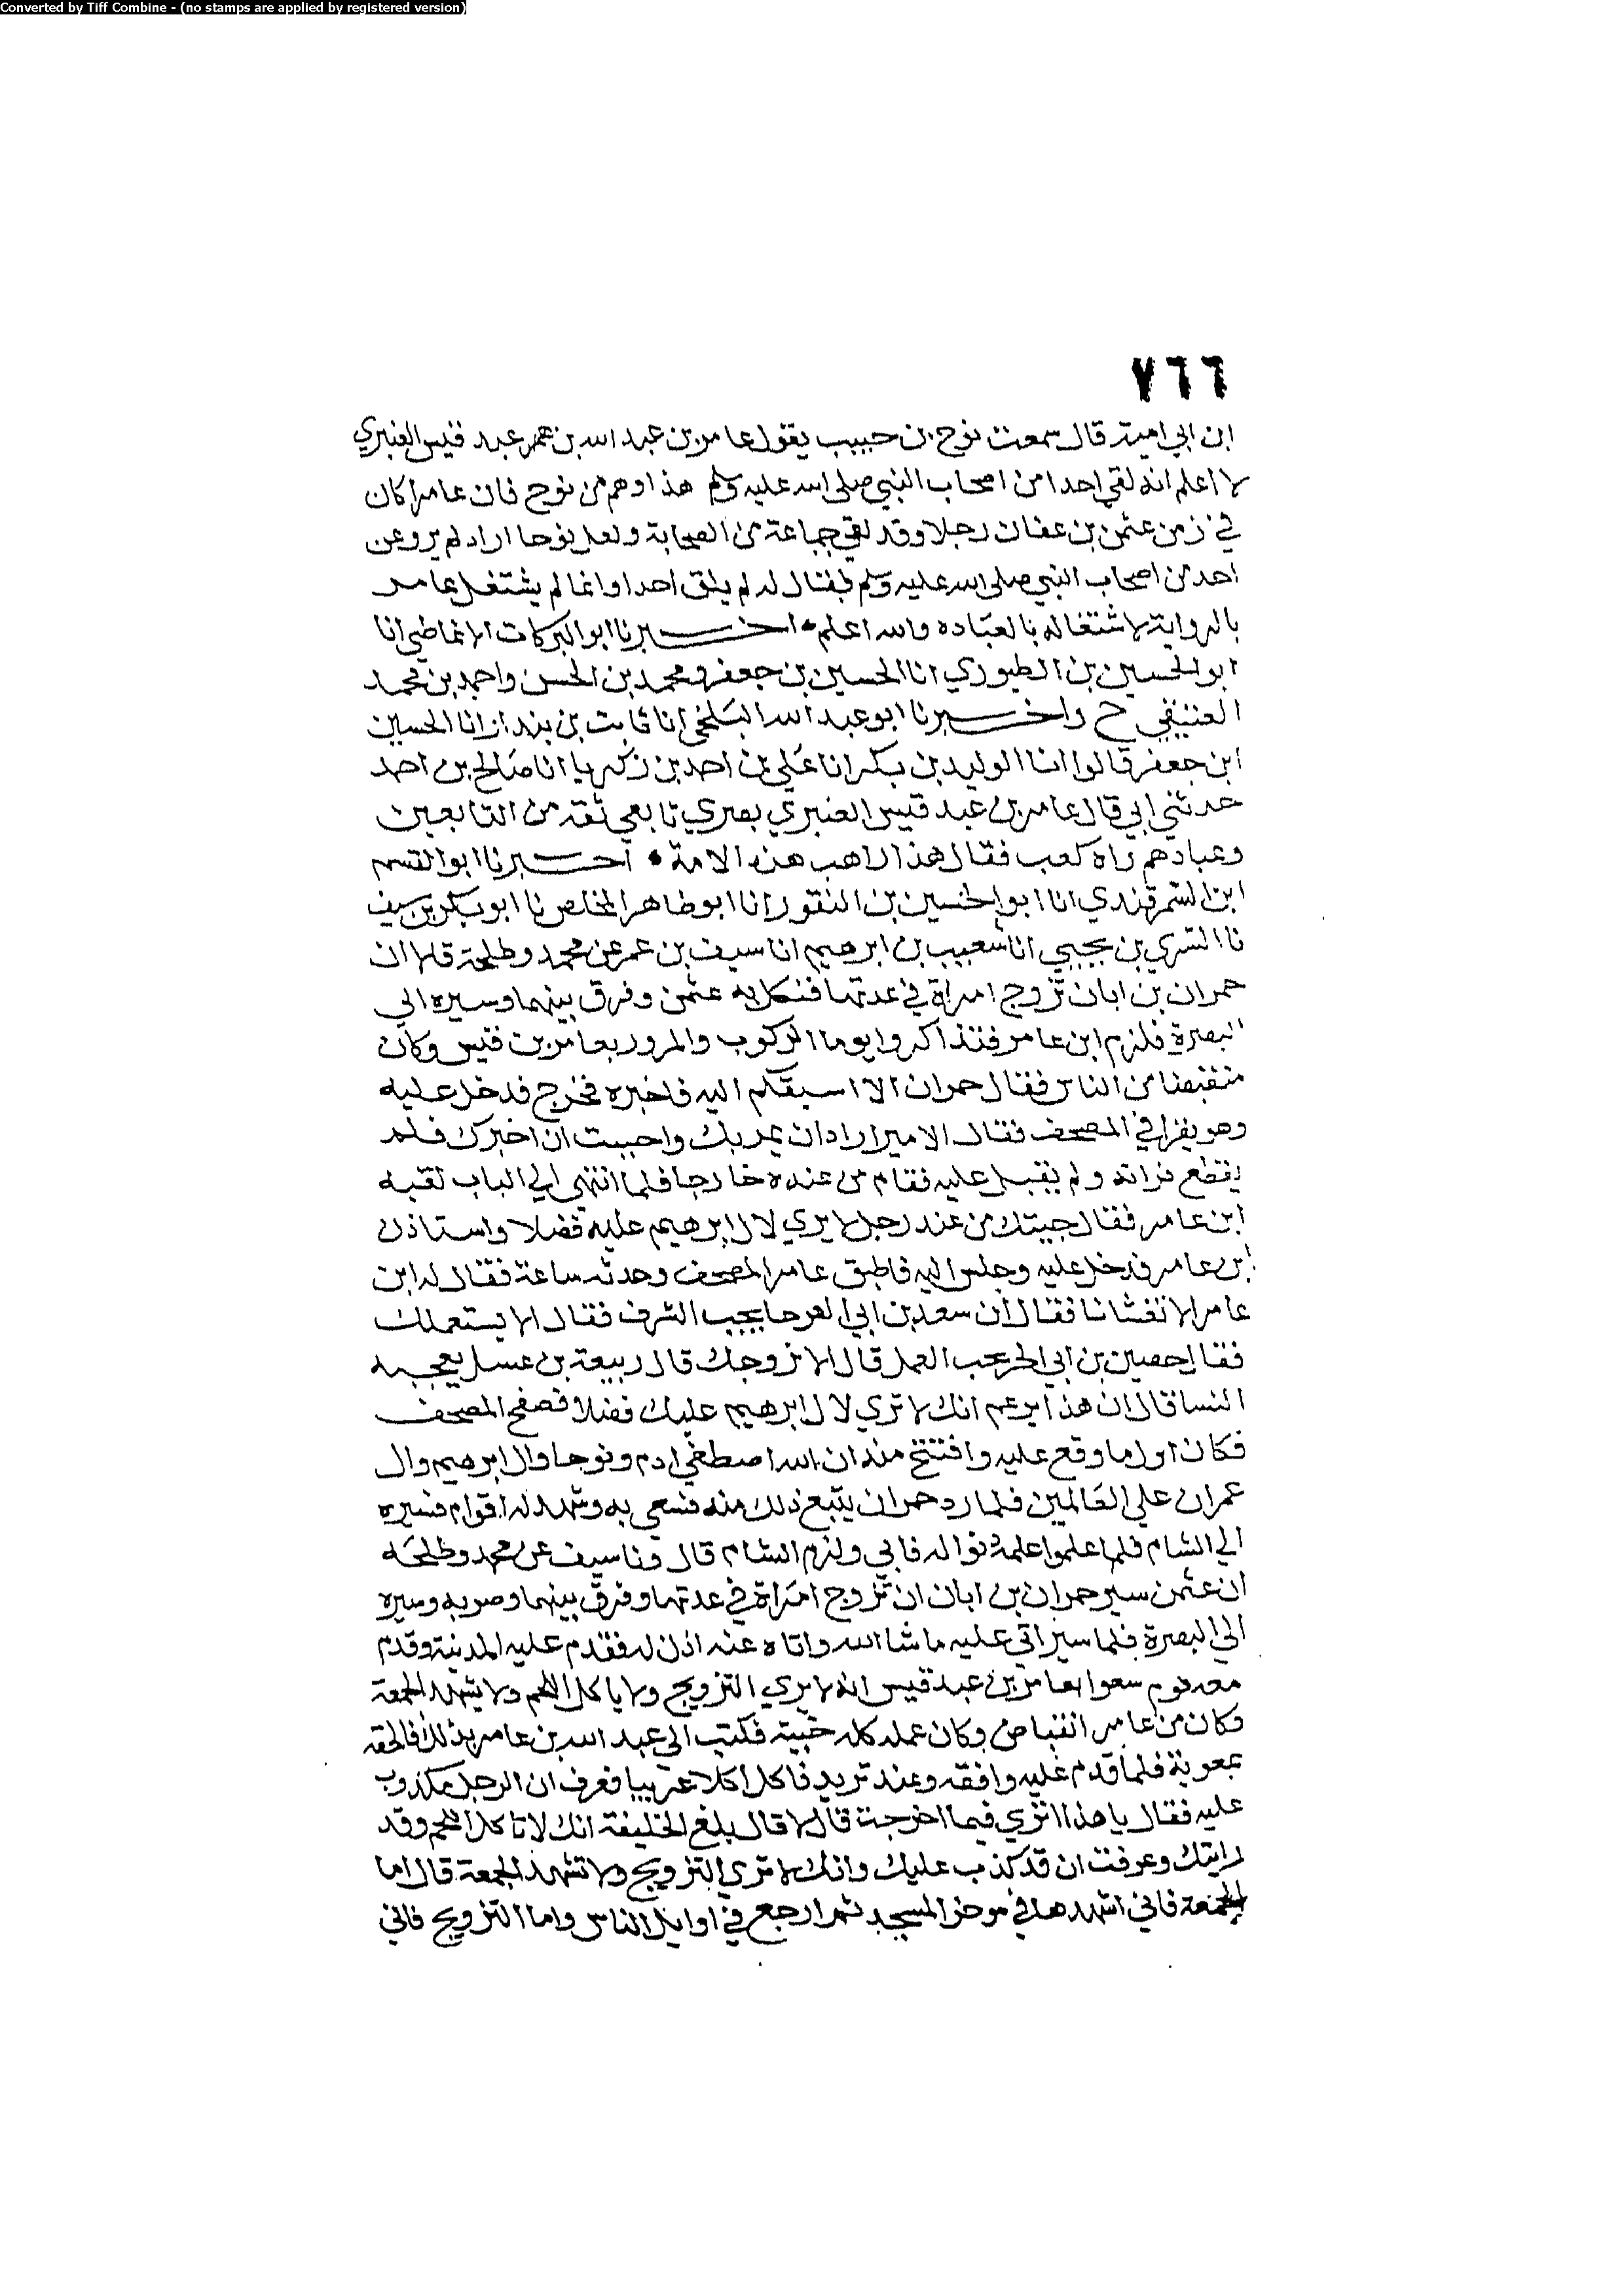 Converted by Tiff Combine - (no stamps are applied by registered version)
٧٦٦
ابن ابي امية قال سمعت نوح بن حبيب يقول عامر بن عبد الله بن عمر عبد قيس العنبري
لا اعلم انه لقي احدا من اصحاب النبي صلى الله عليه وسلم هذا وهم من نوح فان عامرا كان
في زمن عثمن بن عفان رجلا وقد لقي جماعة من الصحابة ولعل نوحا اراد لم يرو عن
احد من اصحاب النبي صلى الله عليه وسلم فقال لم يلق احدا وانما لم يشتغل عامر
بالرواية لاشتغاله بالعبادة والله اعلم • اخبرنا ابو البركات الانماطي انا
ابو الحسين بن الطيوري انا الحسين بن جعفر ومحمد بن الحسن واحمد بن محمد
العتيقي ح واخبرنا ابو عبد الله البلخي انا ثابت بن بندار انا الحسين
ابن جعفر قالوا انا الوليد بن بكر انا علي بن احمد بن زكريا انا صالح بن احمد
حدثني ابي قال عامر بن عبد قيس العنبري بصري تابعي ثقة من التابعين
وعبادهم راه كعب فقال هذا راهب هذه الامة • اخبرنا ابو القسم
ابن السمرقندي انا ابو الحسين بن النقور انا ابو طاهر المخلص نا ابو بكر بن سيف
نا السري بن يحيي انا شعيب بن ابرهيم انا سيف بن عمر عن محمد وطلحة قالا ان
حمران بن ابان تزوج امراة في عدتها فنكل به عثمن وفرق بينهما وسيره الي
البصرة فلزم ابن عامر فتذاكروا يوما الركوب والمرور بعامر بن قيس وكان
منقبضا من الناس فقال حمران الا اسبقكم اليه فاخبره فخرج فدخل عليه
وهو يقرا في المصحف فقال الامير اراد ان يمر بك واحببت ان اخبرك فلم
يقطع قراته ولم يقبل عليه فقام من عنده خارجا فلما انتهي الي الباب لقيه
ابن عامر فقال جيتك من عند رجل لا يري لال ابرهيم عليه فضلا واستاذن
ابن عامر فدخل عليه وجلس اليه فاطبق عامر المصحف وحدثه ساعة فقال له ابن
عامر الا تغشانا فقال ان سعد بن ابي العرجا يحب الشرف فقال الا يستعملك
فقال حصين بن ابي الحر يحب العمل قال الا نزوجك قال ربيعة بن عسل يعجبه
النسا قال ان هذا يزعم انك لا تري لال ابرهيم عليك فضلا فصفح المصحف
فكان اول ما وقع عليه وافتتح منه ان الله اصطفي ادم ونوحا وال ابرهيم وال
عمران علي العالمين فلما رد حمران يتبع ذلك منه فسعي به وشهد له اقوام فسيره
الي الشام فلما علموا علمه نوا له فابي ولزم الشام قال ونا سيف عن محمد وطلحه
ان عثمن سير حمران بن ابان ان تزوج امراة في عدتها وفرق بينهما وضربه وسيره
الي البصرة فلما سير اتي عليه ما شا الله واتاه عنه اذن له فقدم عليه المدينة وقدم
معه قوم سعوا بعامر بن عبد قيس انه لا يري التزويج ولا ياكل اللحم ولا يشهد الجمعة
وكان من عامر انقباض وكان عمله كله خبية فكتب الي عبد الله بن عامر بذلك فالحقه
بمعوية فلما قدم عليه وافقه وعنده تريد فاكل اكلا عربيا فعرف ان الرجل مكذوب
عليه فقال يا هذا اتدري فيما اخرجت قال لا قال بلغ الخليفة انك لا تاكل اللحم وقد
رايتك وعرفت ان قد كذب عليك وانك لا تري التزويج ولا تشهد الجمعة قال اما
الجمعة فاني اشهدها في موخر المسجد ثم ارجع في اوايل الناس واما التزويج فاني